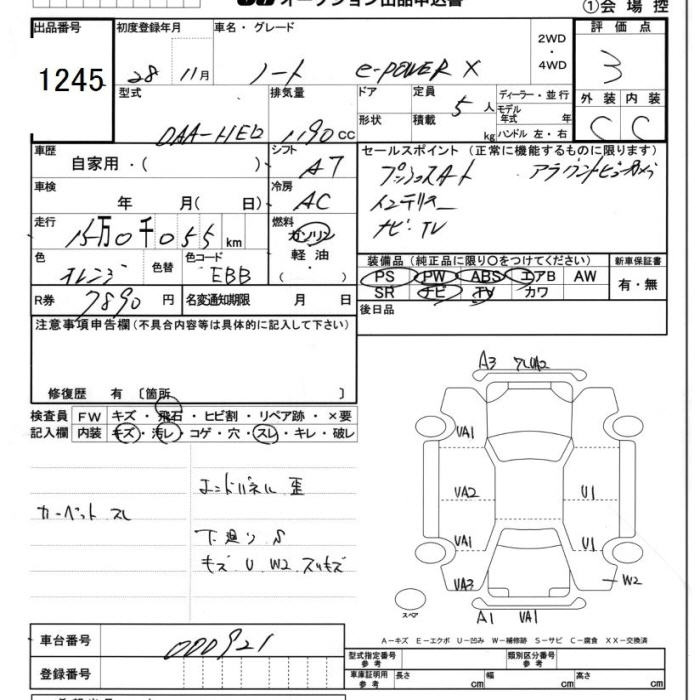 オークション出品申込書
①会場控
出品番号 初度登録年月 車名・グレード 評価点
1245 28 11月 ノート e-POWER X 2WD・4WD 3
型式 排気量 ドア 定員 5人 ディーラー・並行 外装 内装
DAA-HE12 1190cc 形状 積載 kg モデル年式 年 C C
ハンドル 左・右
車歴 自家用・( ) シフト AT セールスポイント(正常に機能するものに限ります)
車検 年 月(日) 冷房 AC プッシュスタート アラウンドビューカメラ
インテリキー
走行 15万0千055km 燃料 ガソリン 軽油 ・( ) ナビ TV
色 オレンジ 色替 色コード EBB 装備品(純正品に限り○をつけてください) 新車保証書
PS PW ABS エアB AW 有・無
SR ナビ TV カワ
R券 7890円 名変通知期限 月 日 後日品
注意事項申告欄(不具合内容等は具体的に記入して下さい)
修復歴 有 〔箇所 〕
検査員 FW キズ・飛石・ヒビ割・リペア跡・×要
記入欄 内装 キズ・汚レ・コゲ・穴・スレ・キレ・破レ
エンドパネル 歪
カーペット スレ
下廻り S
キズ U W2 スリキズ
A3 フレUA2
UA1
UA2 U1
UA1 U1
UA3 W2
スペア A1 UA1
A-キズ E-エクボ U-凹み W-補修跡 S-サビ C-腐食 XX-交換済
車台番号 000921
型式指定番号 参考 類別区分番号 参考
登録番号
車庫証明用 参考 長さ cm 幅 cm 高さ cm